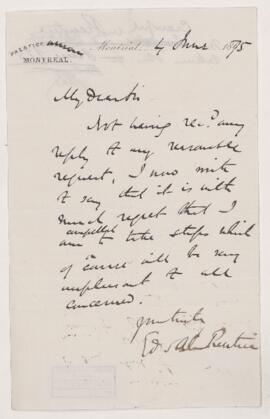 PRENTICE
MONTREAL.
Montreal, 4 June 1895
My Dear Sir
Not having rec.d any
reply to my reasonable
request, I now write
to say that it is with
much regret that I
am compelled to take steps which
of course will be very
unpleasant to all
concerned.
Yours truly
Prentice